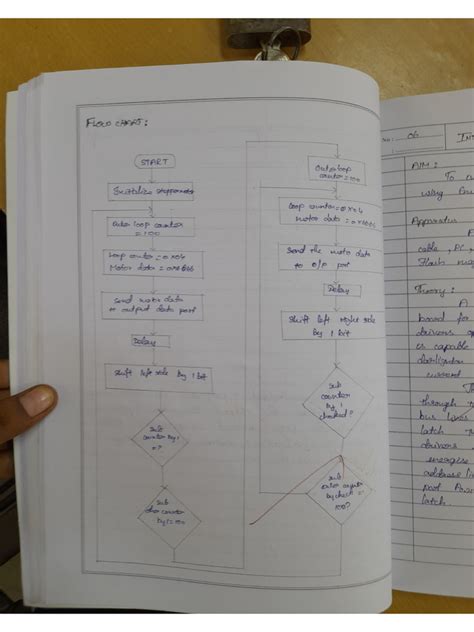 FLOW CHART:
START
Initialize steppermotor
Outer loop counter
= 100
Loop counter = 0x04
Motor data = 0x6666
Send motor data
or output data port
Delay
Shift left side by 1 bit
Sub
counter
by 1
0?
Sub
other counter
by 1 = 100
Outer loop
counter = 100
Loop counter = 0x04
Motor data =
Send the moto data
to O/P port
Delay
Shift left right side
by 1 bit
Sub
counter
by 1
checked?
Sub
outer
by check =
100?
No: 06
INT
AIM:
To
using
Apparatus
cable, PC,
Flash
Theory:
A
board for
drivers
is capable
current
Th
through
bus lines
latch
drivers
energise
address
port
latch.